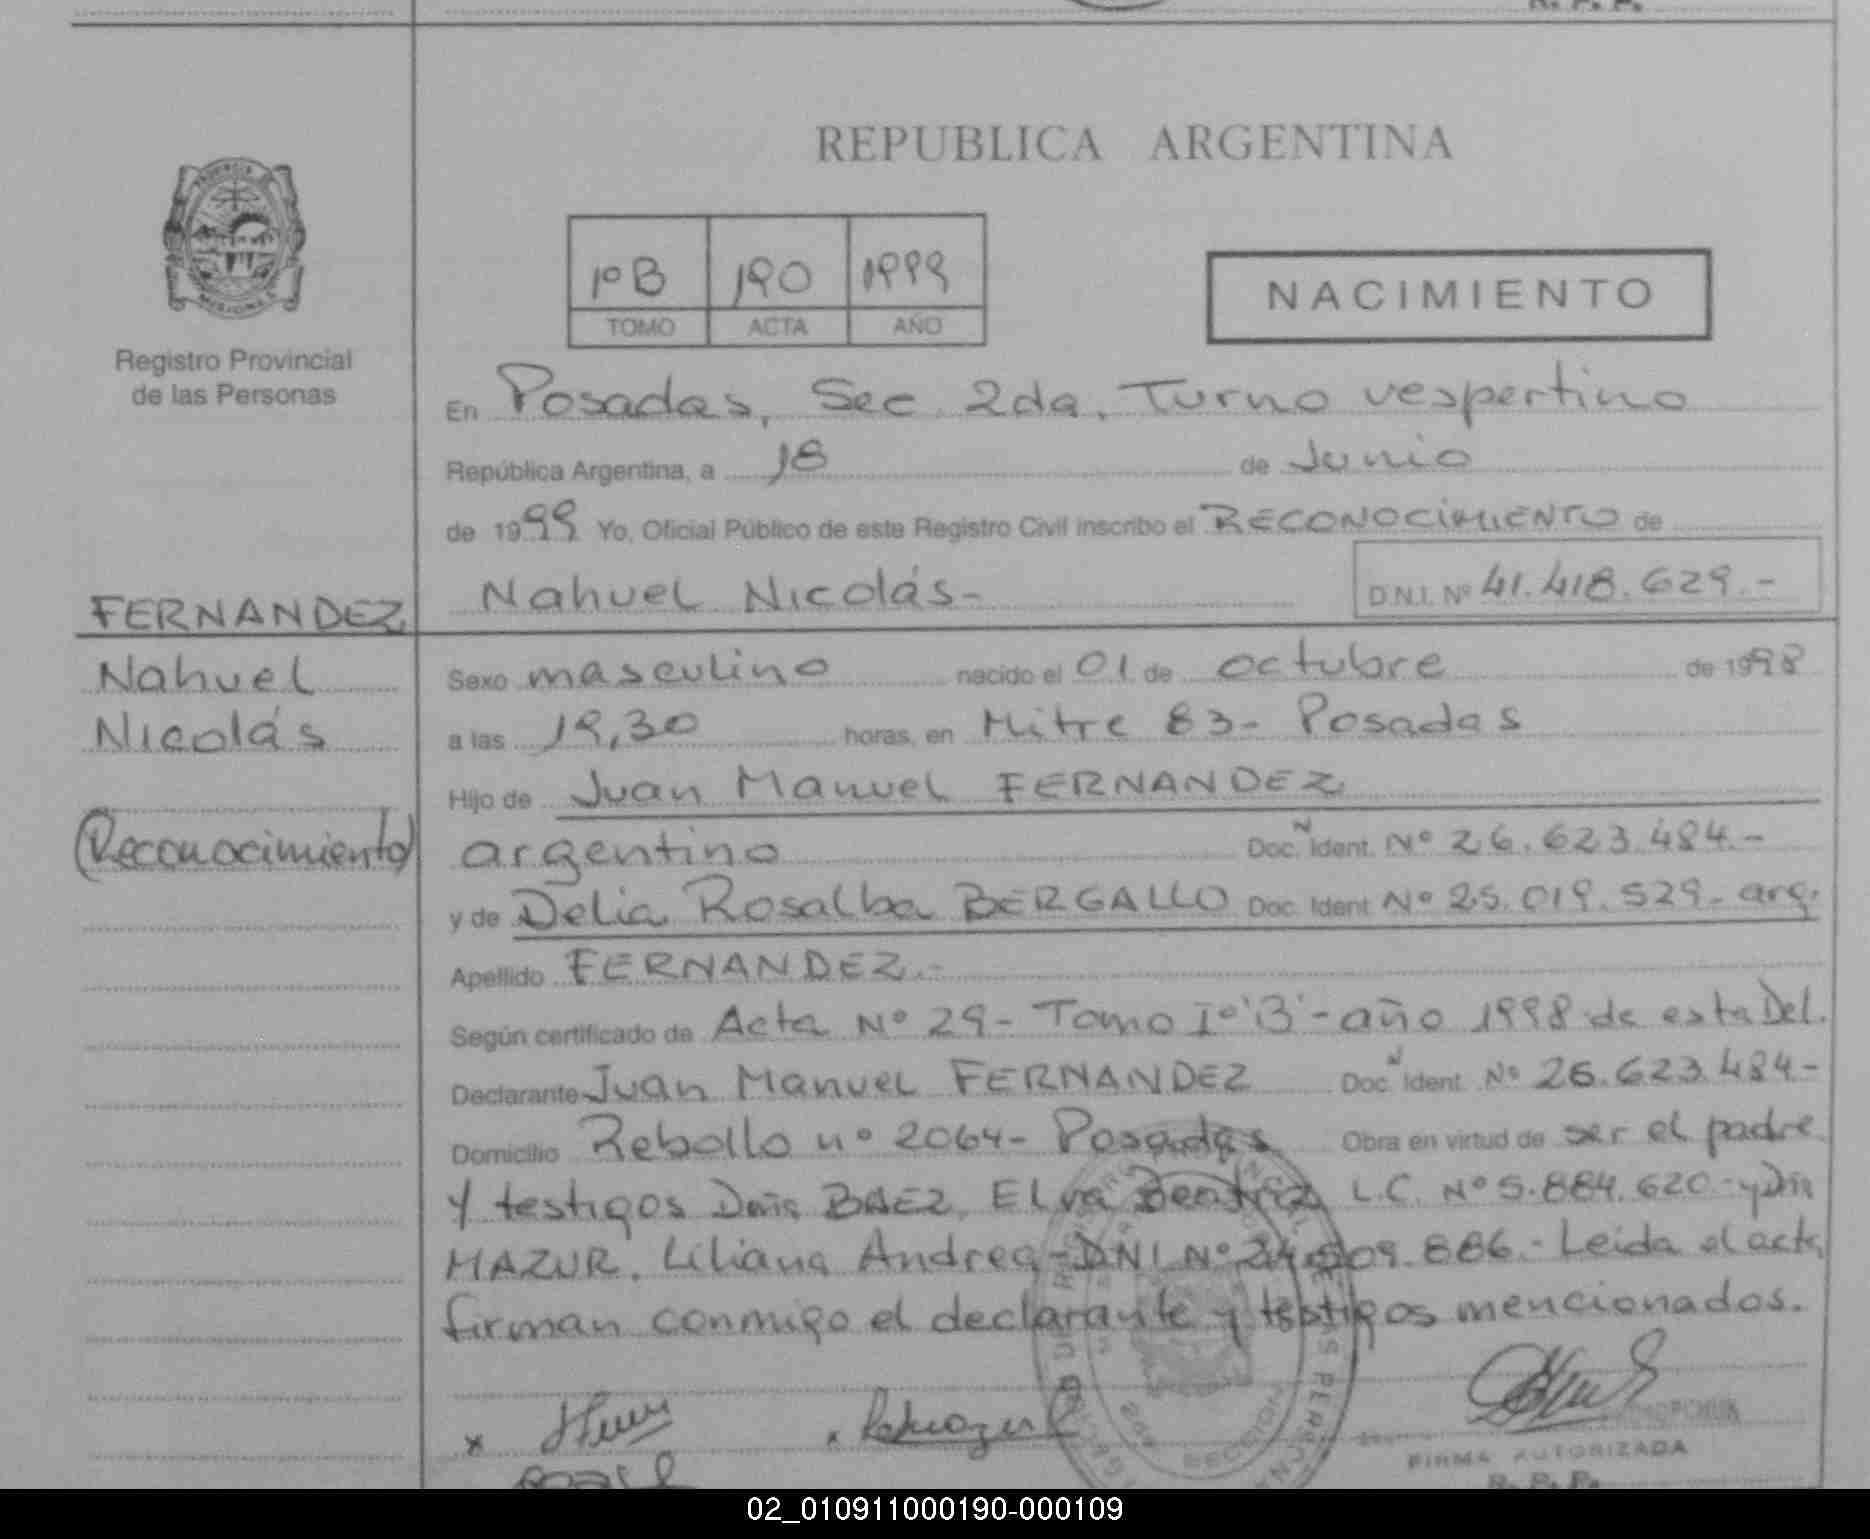 REPUBLICA ARGENTINA
1º B 190 1999
TOMO ACTA AÑO
NACIMIENTO
Registro Provincial
de las Personas
En Posadas, Sec. 2da. Turno vespertino
República Argentina, a 18 de Junio
de 1999 Yo, Oficial Público de este Registro Civil inscribo el RECONOCIMIENTO de
Nahuel Nicolás- D.N.I. Nº 41.418.629.-
FERNANDEZ
Nahuel
Nicolás
(Reconocimiento)
Sexo masculino nacido el 01 de octubre de 1998
a las 19,30 horas, en Mitre 83- Posadas
Hijo de Juan Manuel FERNANDEZ
argentino Doc. N Ident. Nº 26.623.484.-
y de Delia Rosalba BERGALLO Doc. Ident Nº 25.019.529- arg.
Apellido FERNANDEZ.-
Según certificado de Acta Nº 29- Tomo Iº 'B'- año 1998 de esta Del.
Declarante Juan Manuel FERNANDEZ Doc. N Ident. Nº 26.623.484-
Domicilio Rebollo nº 2064- Posadas Obra en virtud de ser el padre
y testigos Dña BAEZ, Elva Beatriz L.C. Nº 5.884.620.- y Dña
MAZUR, Liliana Andrea- DNI. Nº 24.509.886.- Leida el acta
firman conmigo el declarante y testigos mencionados.
FIRMA AUTORIZADA
R. P. P.
02_010911000190-000109